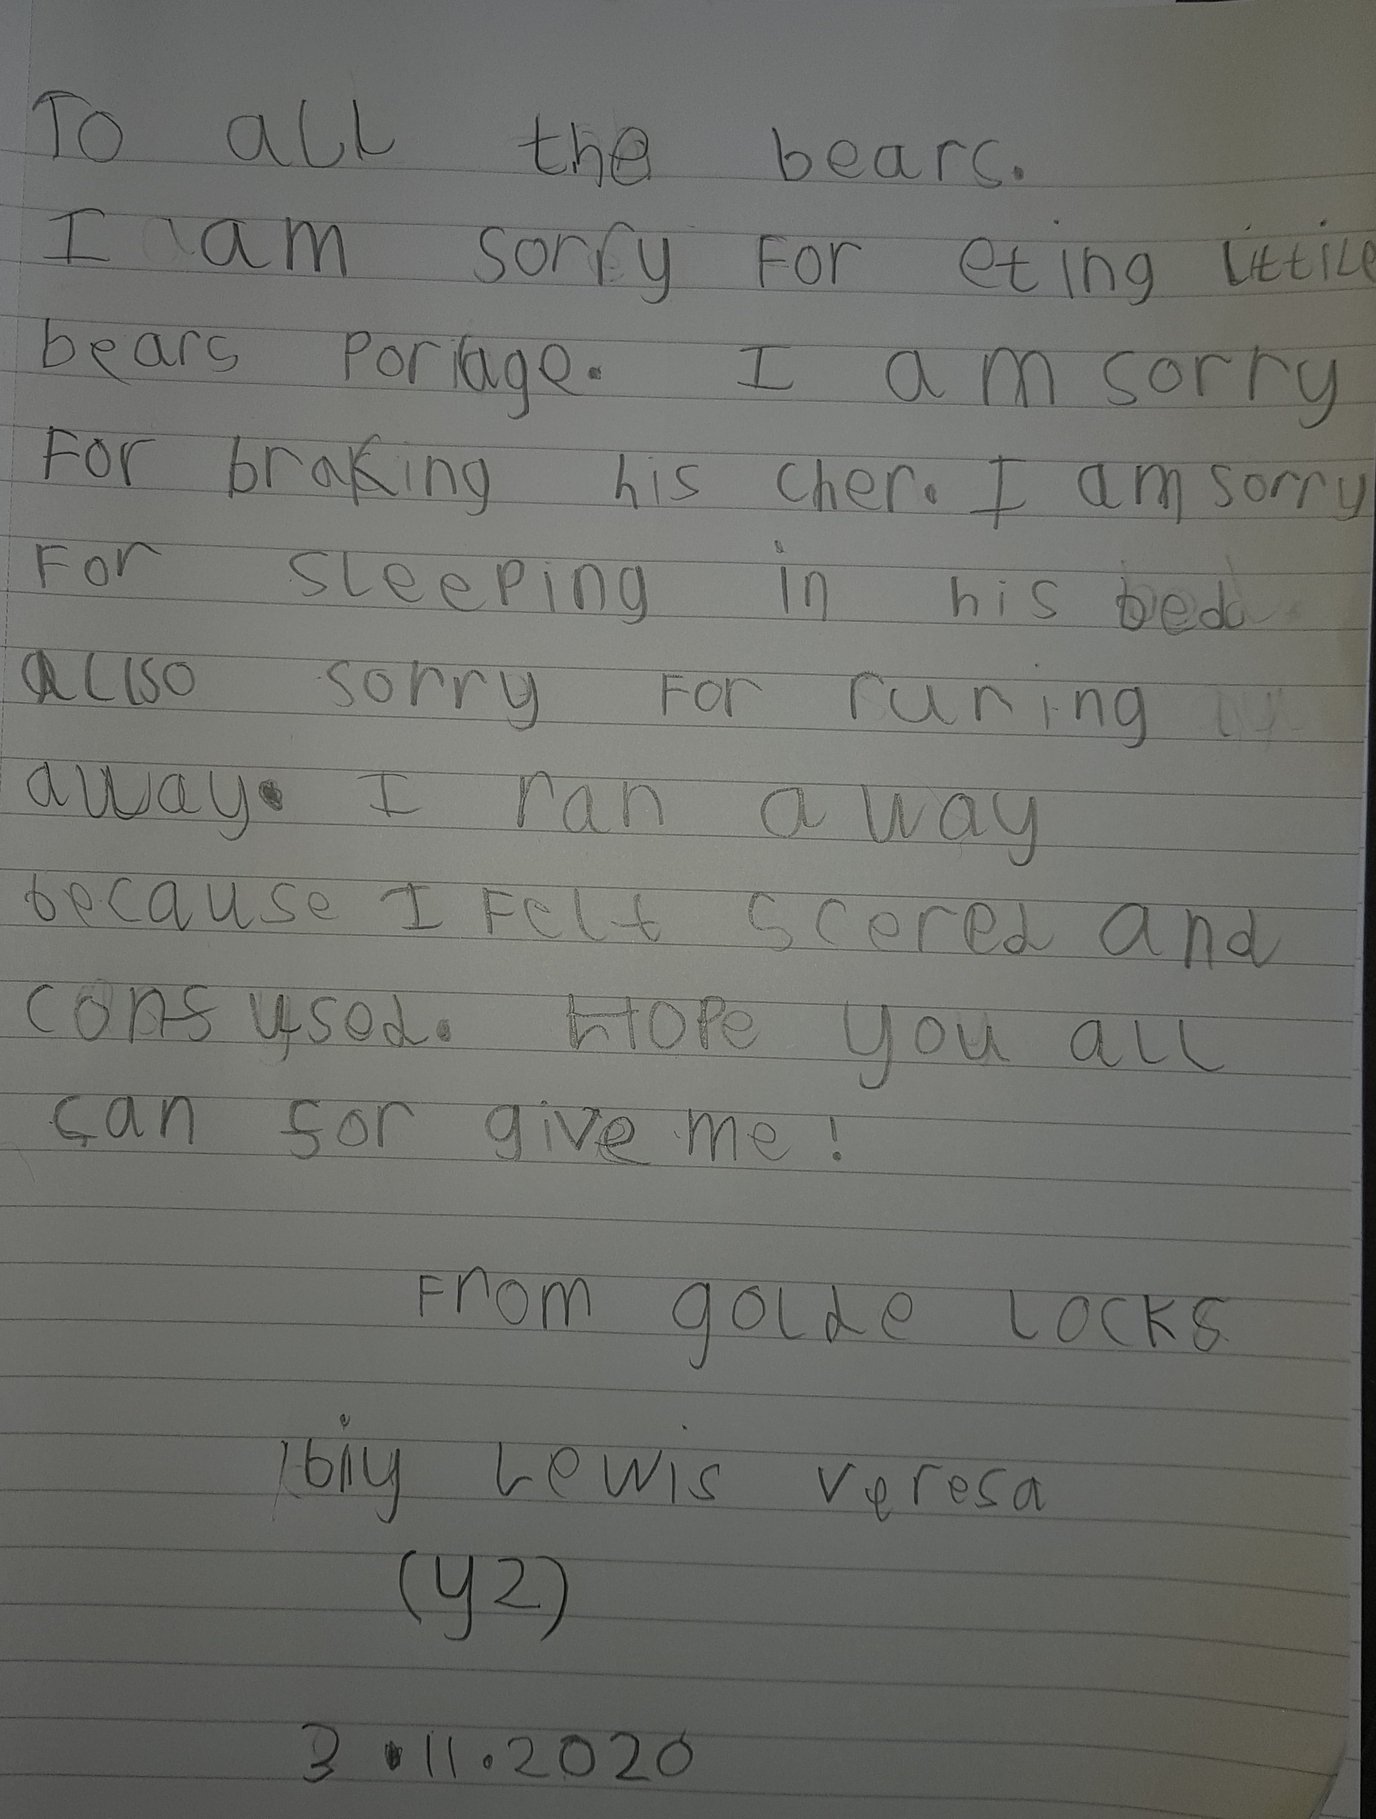 To all the bears.
I am sorry For eting littile
bears Poriage. I am sorry
For braking his cher. I am sorry
For sleeping in his bed
aliso sorry For runing
away. I ran a way
because I Felt scered and
confused. Hope you all
can for give me!
From golde locks
by Lewis veresa
(y2)
3.11.2020